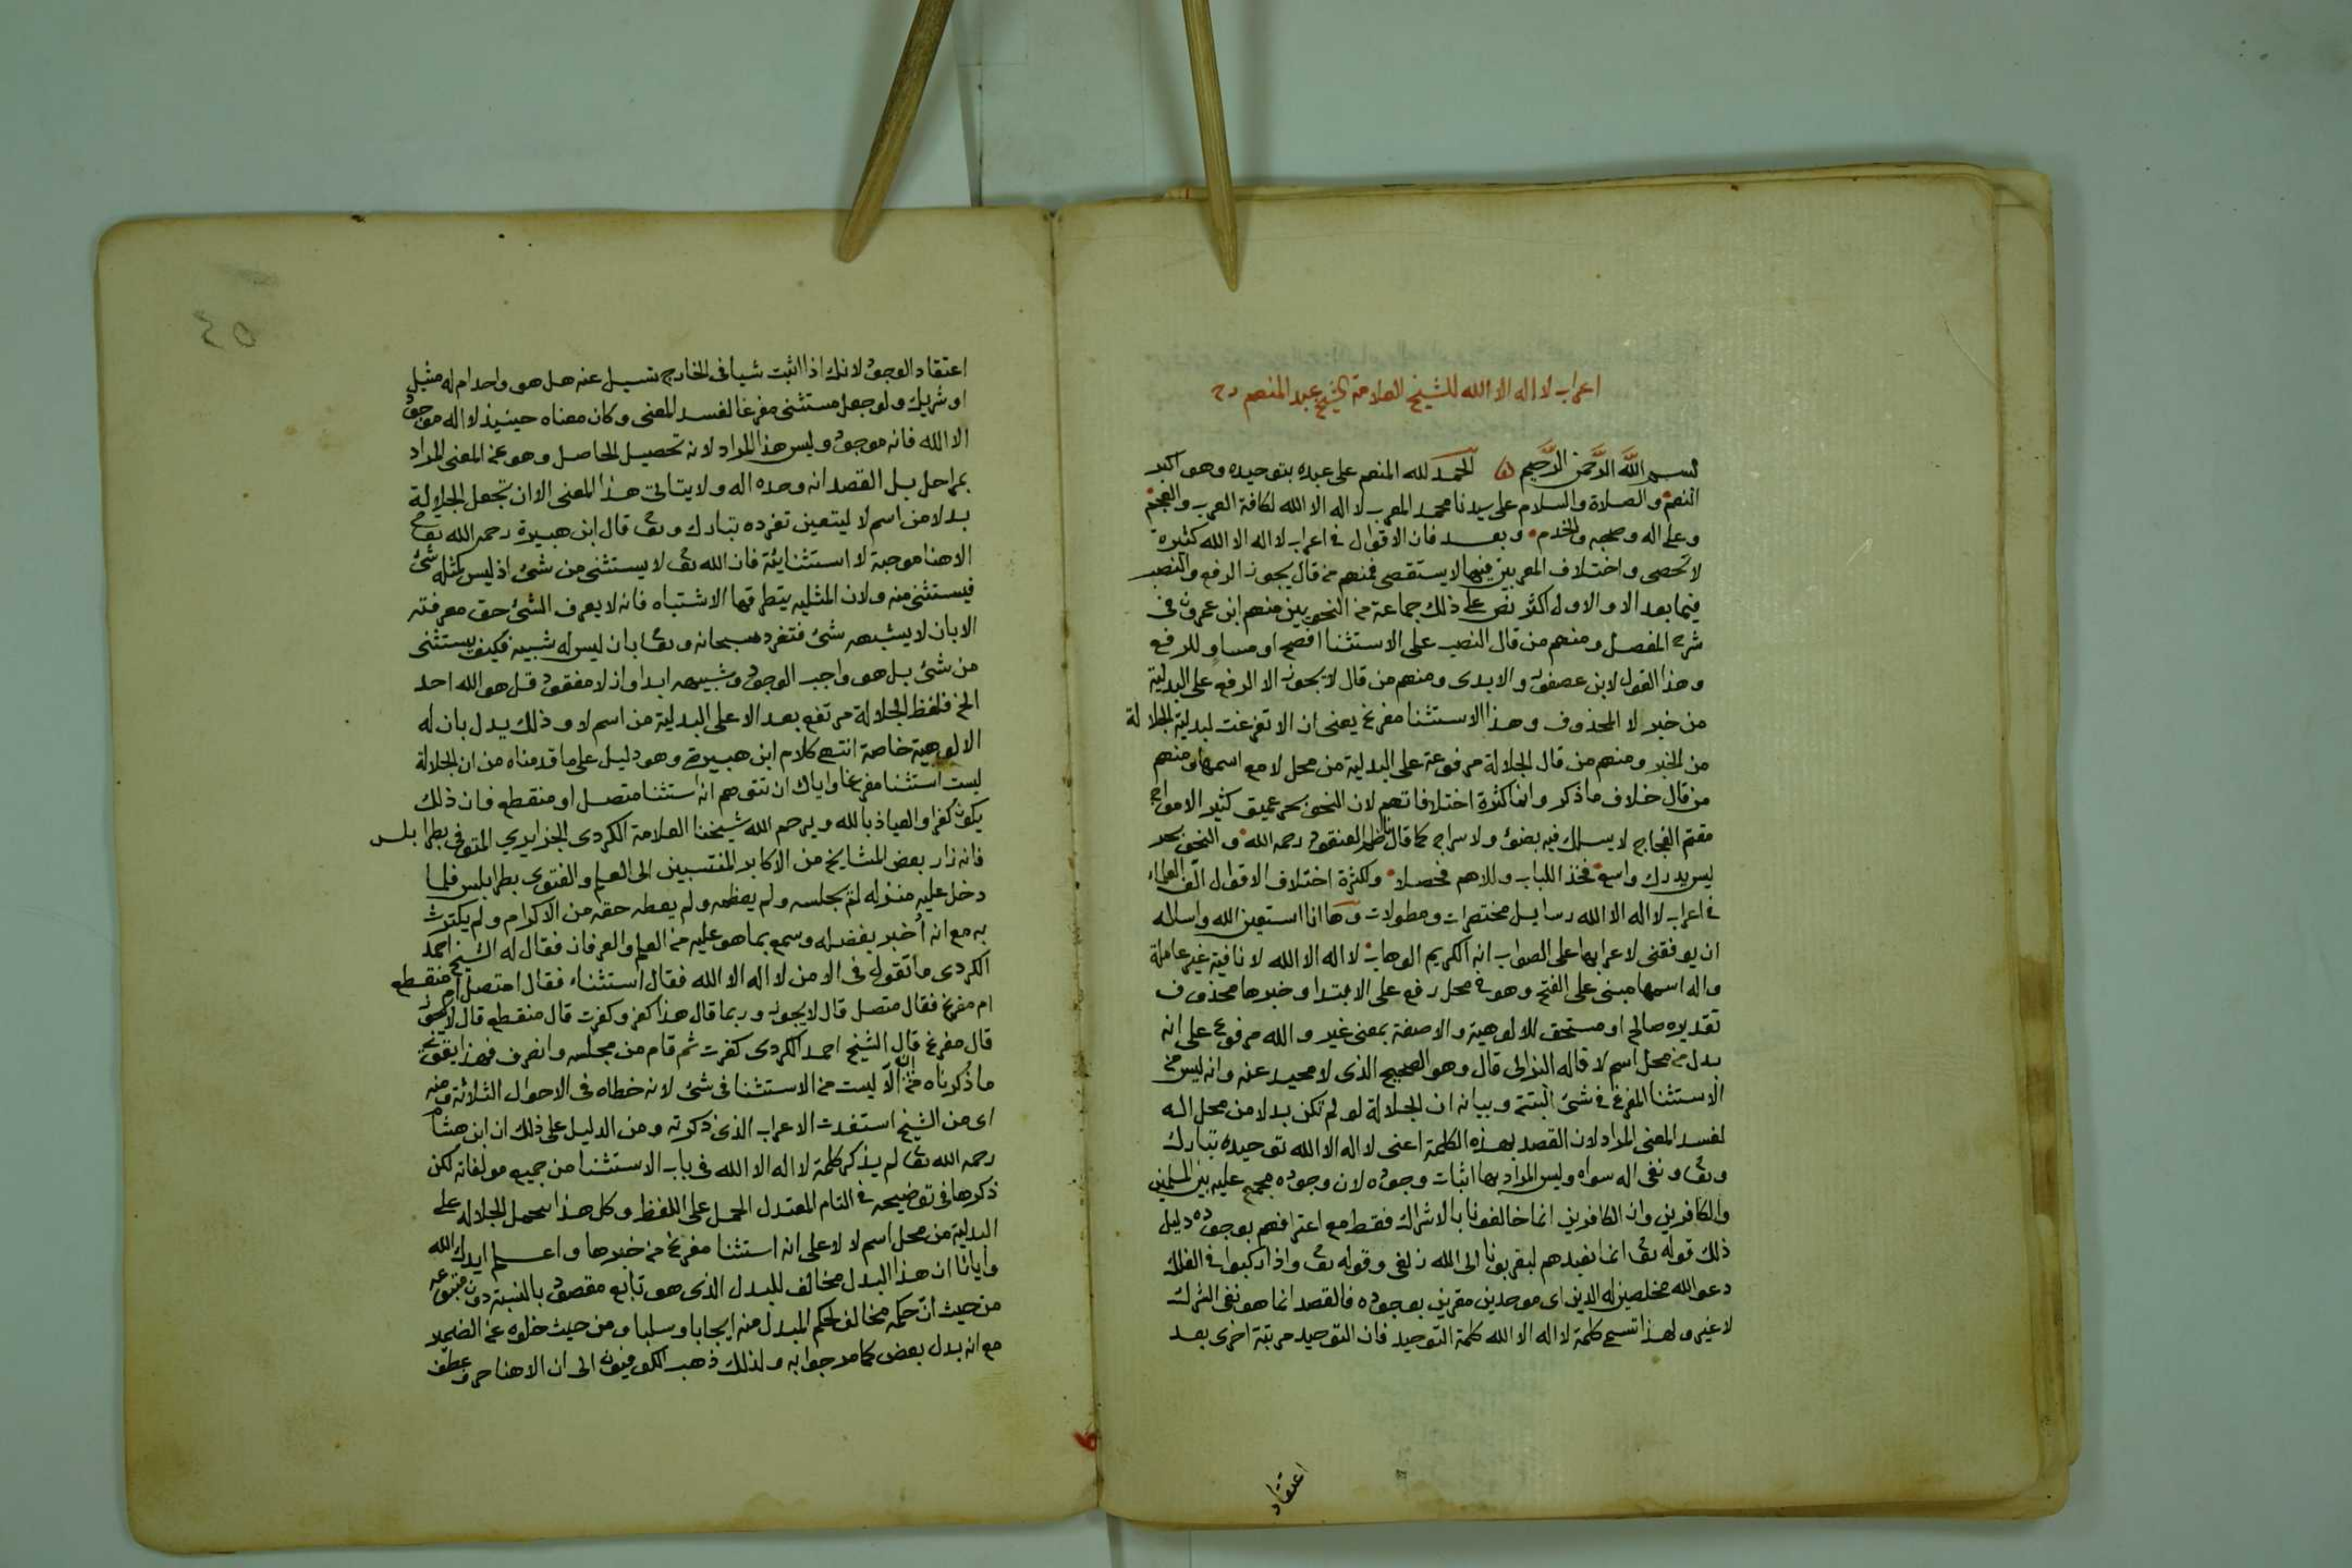 اعراب لا اله الا الله للشيخ العلامة الشيخ عبد المنعم رح
بسم الله الرحمن الرحيم الحمد لله المنعم على عبده بتوحيده وهو اكبر
النعم والصلاة والسلام على سيدنا محمد المعرب لا اله الا الله لكافة العرب والعجم
وعلى اله وصحبه والخدم وبعد فان الاقوال في اعراب لا اله الا الله كثيرة
لا تحصى واختلاف المعربين فيها لا يستقصى فمنهم من قال يجوز الرفع والنصب
فيما بعد الا والاول اكثر نص على ذلك جماعة من النحويين منهم ابن عمرون في
شرح المفصل ومنهم من قال النصب على الاستثنا افصح او مساو للرفع
وهذا القول لابن عصفور والابدى ومنهم من قال لا يجوز الا الرفع على البدلية
من خبر لا المحذوف وهذا الاستثنا مفرغ يعنى ان الا تفرغت لبدلية الجلالة
من الخبر ومنهم من قال الجلالة مرفوعة على البدلية من محل لا مع اسمها ومنهم
من قال خلاف ما ذكر وانما كثرة اختلافاتهم لان النحو بحر عميق كثير الامواج
مقتم الفجاج لا يسلك فيه بضوء ولا سراج كما قال ناظم العنقود رحمه الله والنحو بحر
ليس يدرك واسع فخذ اللباب وللاهم فحصلا ولكثرة اختلاف الاقوال الف العلماء
في اعراب لا اله الا الله رسايل مختصرات ومطولات وها انا استعين الله واساله
ان يوفقنى لاعرابها على الصواب انه الكريم الوهاب لا اله الا الله لا نافية غير عاملة
واله اسمها مبنى على الفتح وهو في محل رفع على الابتدا وخبرها محذوف
تقديره صالح او مستحق للالوهية والا صفة بمعنى غير والله مرفوع على انه
بدل من محل اسم لا قاله قال وهو الصحيح الذى لا محيد عنه وانه ليس من
الاستثنا المفرغ في شئ البتة وبيانه ان الجلالة لو لم تكن بدلا من محل اله
لفسد المعنى المراد لان القصد بهذه الكلمة اعنى لا اله الا الله توحيده تبارك
وتعا ونفى اله سواه وليس المراد بها اثبات وجوده لان وجوده مجمع عليه بين المسلمين
والكافرين وان الكافرين انما خالفونا بالاشراك فقط مع اعترافهم بوجوده دليل
ذلك قوله تعا انما نعبدهم ليقربونا الى الله زلفى وقوله تعا واذا ركبوا في الفلك
دعوا الله مخلصين له الدين اى موحدين مقرين بوجوده فالقصد انما هو نفى الشرك
لا غير ولهذا تسمى كلمة لا اله الا الله كلمة التوحيد فان التوحيد مرتبة اخرى بعد
اعتقاد
٤٥
اعتقاد الوجود لانك اذا اثبت شيا في الخارج تسيل عنه هل هو واحد ام له مثيل
او شريك ولو جعل مستثنى مفرغا لفسد المعنى وكان معناه حينيذ لا اله موجود
الا الله فانه موجود وليس هذا المراد لانه تحصيل الحاصل وهو عن المعنى المراد
بمراحل بل القصد انه وحده اله ولا يتاتى هذا المعنى الا ان تجعل الجلالة
بدلا من اسم لا ليتعين تفرده تبارك وتعا قال ابن هبيرة رحمه الله تعا
الا هنا موجبة لا استثنايئة فان الله تعا لا يستثنى من شئ اذ ليس كمثله شئ
فيستثنى منه ولان المثلية يتطرقها الاشتباه فانه لا يعرف الشئ حق معرفته
الا بان لا يشبهه شئ فتفرد سبحانه وتعا بان ليس له شبيه فكيف يستثنى
من شئ بل هو واجب الوجود وشبيهه ابدا وازلا مفقود قل هو الله احد
الخ فلفظ الجلالة مرتفع بعد الا على البدلية من اسم لا وذلك يدل بان له
الالوهية خاصة انتهى كلام ابن هبيرة وهو دليل على ما قدمناه من ان الجلالة
ليست استثنا مفرغا واياك ان تتوهم انه استثنا متصل او منقطع فان ذلك
يكون كفرا والعياذ بالله ويرحم الله شيخنا العلامة الكردى الجزايري المتوفى بطرابلس
فانه زار بعض المشايخ من الاكابر المنتسبين الى العلم والفتوى بطرابلس فلما
دخل عليه منزله لم يجلسه ولم يعظمه ولم يعطه حقه من الاكرام ولم يكترث
به مع انه اخبر بفضله وسمع بما هو عليه من العلم والعرفان فقال له الشيخ احمد
الكردى ما تقول في الا من لا اله الا الله فقال استثناء فقال امتصل ام منقطع
ام مفرغ فقال متصل قال لا يجوز وربما قال هذا كفر وكفرت قال منقطع قال لا يجوز
قال مفرغ قال الشيخ احمد الكردى كفرت ثم قام من مجلسه وانصرف فهذا يقوى
ما ذكرناه من ان الا ليست من الاستثنا في شئ لانه خطاه في الاحوال الثلاثة ومنه
اى من الشيخ استفدت الاعراب الذى ذكرته ومن الدليل على ذلك ان ابن هشام
رحمه الله تعا لم يذكر كلمة لا اله الا الله في باب الاستثنا من جميع مولفاته لكن
ذكرها في توضيحه في التام المعتدل الحمل على اللفظ وكل هذا الجلاله على
البدلية من محل اسم لا لا على انه استثنا مفرغ من خبرها واعلم ايدك الله
وايانا ان هذا البدل مخالف للبدل الذى هو تابع مقصود بالنسبة دون متبوعه
من حيث ان حكمه مخالف لحكم المبدل منه ايجابا وسلبا ومن حيث خلوه عن الضمير
مع انه بدل بعض كما مر جوابه ولذلك ذهب الكوفيون الى ان الا هنا حرف عطف